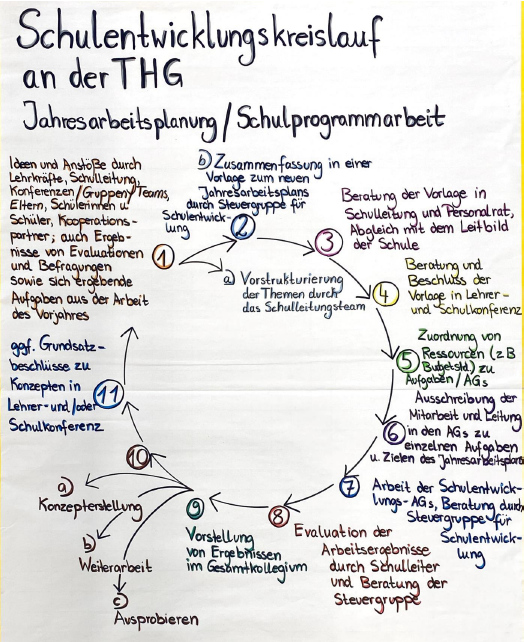 Schulentwicklungskreislauf
an der THG
Jahresarbeitsplanung/Schulprogrammarbeit
Ideen und Anstöße durch
Lehrkräfte, Schulleitung,
Konferenzen/Gruppen/Teams,
Eltern, Schülerinnen u.
Schüler, Kooperations-
partner; auch Ergeb-
nisse von Evaluationen
und Befragungen
sowie sich ergebende
Aufgaben aus der Arbeit
des Vorjahres
1
b) Zusammenfassung in einer
Vorlage zum neuen
Jahresarbeitsplans
durch Steuergruppe für
Schulentwick-
lung
2
a) Vorstrukturierung
der Themen durch
das Schulleitungsteam
Beratung der Vorlage in
Schulleitung und Personalrat,
Abgleich mit dem Leitbild
der Schule
3
Beratung und
Beschluss der
Vorlage in Lehrer-
und Schulkonferenz
4
Zuordnung von
Ressourcen (z B
Budgetstd.) zu
Aufgaben/AGs
5
Ausschreibung der
Mitarbeit und Leitung
in den AGs zu
einzelnen Aufgaben
u. Zielen des Jahresarbeitsplans
6
7
Arbeit der Schulentwick-
lungs-AGs, Beratung durch
Steuergruppe für
Schulentwick-
lung
8
Evaluation der
Arbeitsergebnisse
durch Schulleiter
und Beratung der
Steuergruppe
9
Vorstellung
von Ergebnissen
im Gesamtkollegium
10
a)
Konzepterstellung
b)
Weiterarbeit
c)
Ausprobieren
11
ggf. Grundsatz-
beschlüsse zu
Konzepten in
Lehrer- und/oder
Schulkonferenz